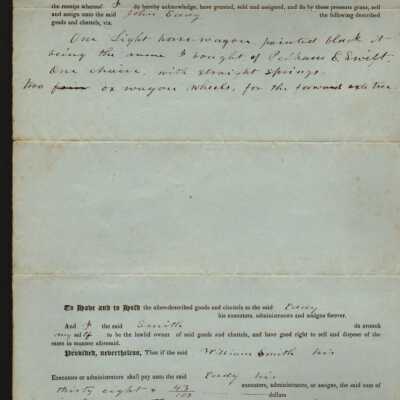 the receipt whereof I do hereby acknowledge, have granted, sold and assigned, and do by these presents grant, sell
and assign unto the said John Eudy the following described
goods and chattels, viz.
One Light horse-wagon painted black it
being the same I bought of Pelham E. Swift.
One chaise, with straight springs.
two ox wagon wheels, for the forward axle tree.
To Have and to Hold the above-described goods and chattels to the said Eudy
his executors, administrators and assigns forever.
And I the said Smith do avouch
myself to be the lawful owner of said goods and chattels, and have good right to sell and dispose of the
same in manner aforesaid.
Provided, nevertheless, That if the said William Smith his
Executors or administrators shall pay unto the said Eudy his
executors, administrators, or assigns, the sum of
thirty eight & 43/100 dollars